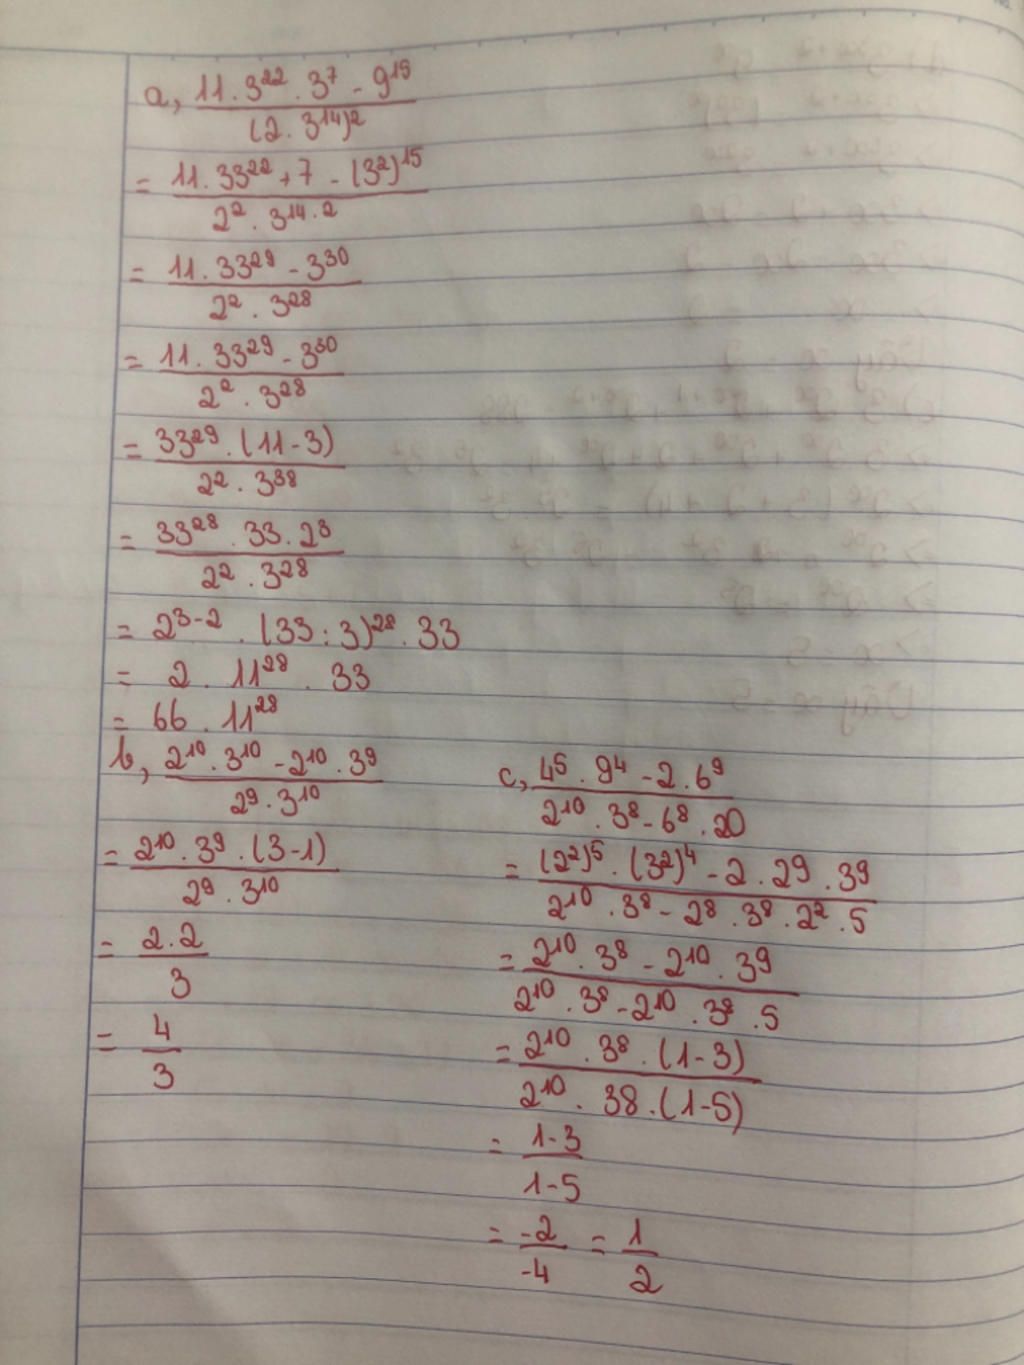 a, \frac{11 . 3^{22} . 3^7 - 9^{15}}{(2 . 3^{14})^2}
= \frac{11 . 33^{22} + 7 - (3^2)^{15}}{2^2 . 3^{14 . 2}}
= \frac{11 . 33^{29} - 3^{30}}{2^2 . 3^{28}}
= \frac{11 . 33^{29} - 3^{30}}{2^2 . 3^{28}}
= \frac{33^{29} . (11 - 3)}{2^2 . 3^{38}}
= \frac{33^{28} . 33 . 2^3}{2^2 . 3^{28}}
= 2^{3-2} . (33 : 3)^{28} . 33
= 2 . 11^{28} . 33
= 66 . 11^{28}
b, \frac{2^{10} . 3^{10} - 2^{10} . 3^9}{2^9 . 3^{10}}
= \frac{2^{10} . 3^9 . (3 - 1)}{2^9 . 3^{10}}
= \frac{2 . 2}{3}
= \frac{4}{3}
c, \frac{4^5 . 9^4 - 2 . 6^9}{2^{10} . 3^8 - 6^8 . 20}
= \frac{(2^2)^5 . (3^2)^4 - 2 . 2^9 . 3^9}{2^{10} . 3^8 - 2^8 . 3^8 . 2^2 . 5}
= \frac{2^{10} . 3^8 - 2^{10} . 3^9}{2^{10} . 3^8 - 2^{10} . 3^8 . 5}
= \frac{2^{10} . 3^8 . (1 - 3)}{2^{10} . 38 . (1 - 5)}
= \frac{1 - 3}{1 - 5}
= \frac{-2}{-4} = \frac{1}{2}